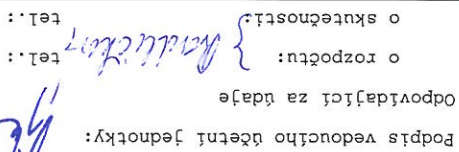 Podpis vedoucího účetní jednotky:
Odpovídající za údaje
o rozpočtu: tel.:
o skutečnosti: tel.: